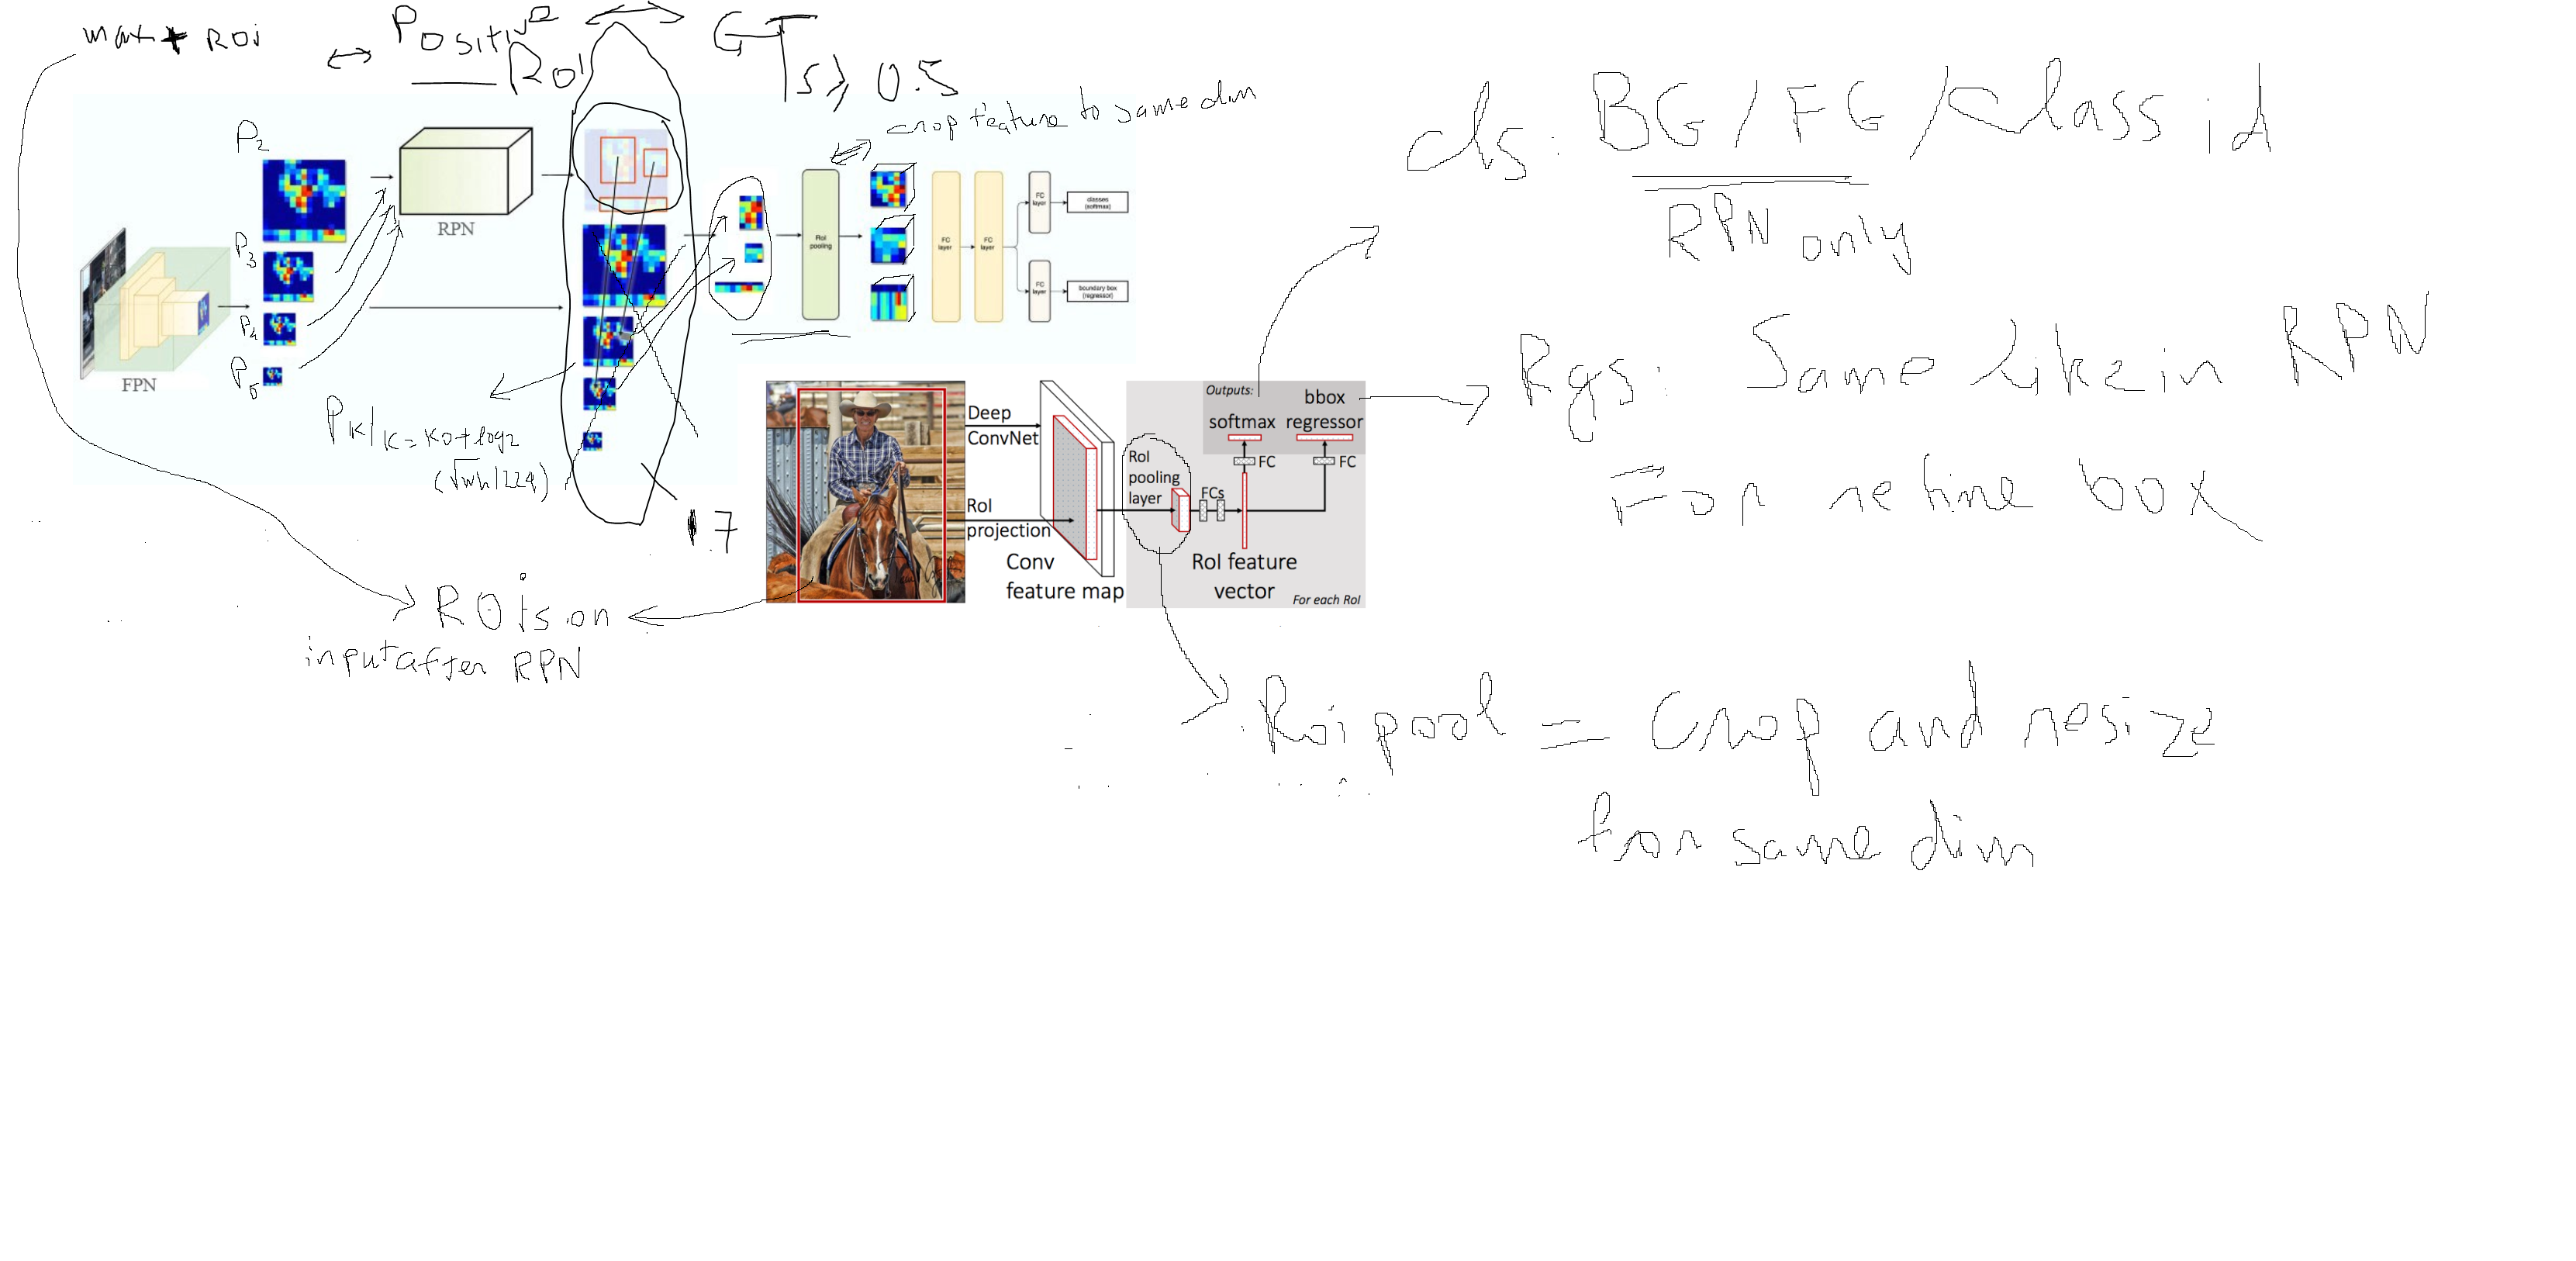 ROi
Positive
RoI
GTs ≥ 0.5
crop feature to same dim
P2
P3
P4
P5
FPN
RPN
RoI
pooling
FC
layer
FC
layer
FC
layer
FC
layer
classes
(softmax)
boundary box
(regressor)
PK/K=K0+log2
(√wh/224)
1.7
ROIs on
input after RPN
Deep
ConvNet
RoI
projection
Conv
feature map
RoI
pooling
layer
FCs
Outputs:
softmax
bbox
regressor
FC
FC
RoI feature
vector
For each RoI
cls: BG/FG/Class id
RPN only
Rgs: Same like in RPN
For refine box
Roi pool = Crop and resize
for same dim